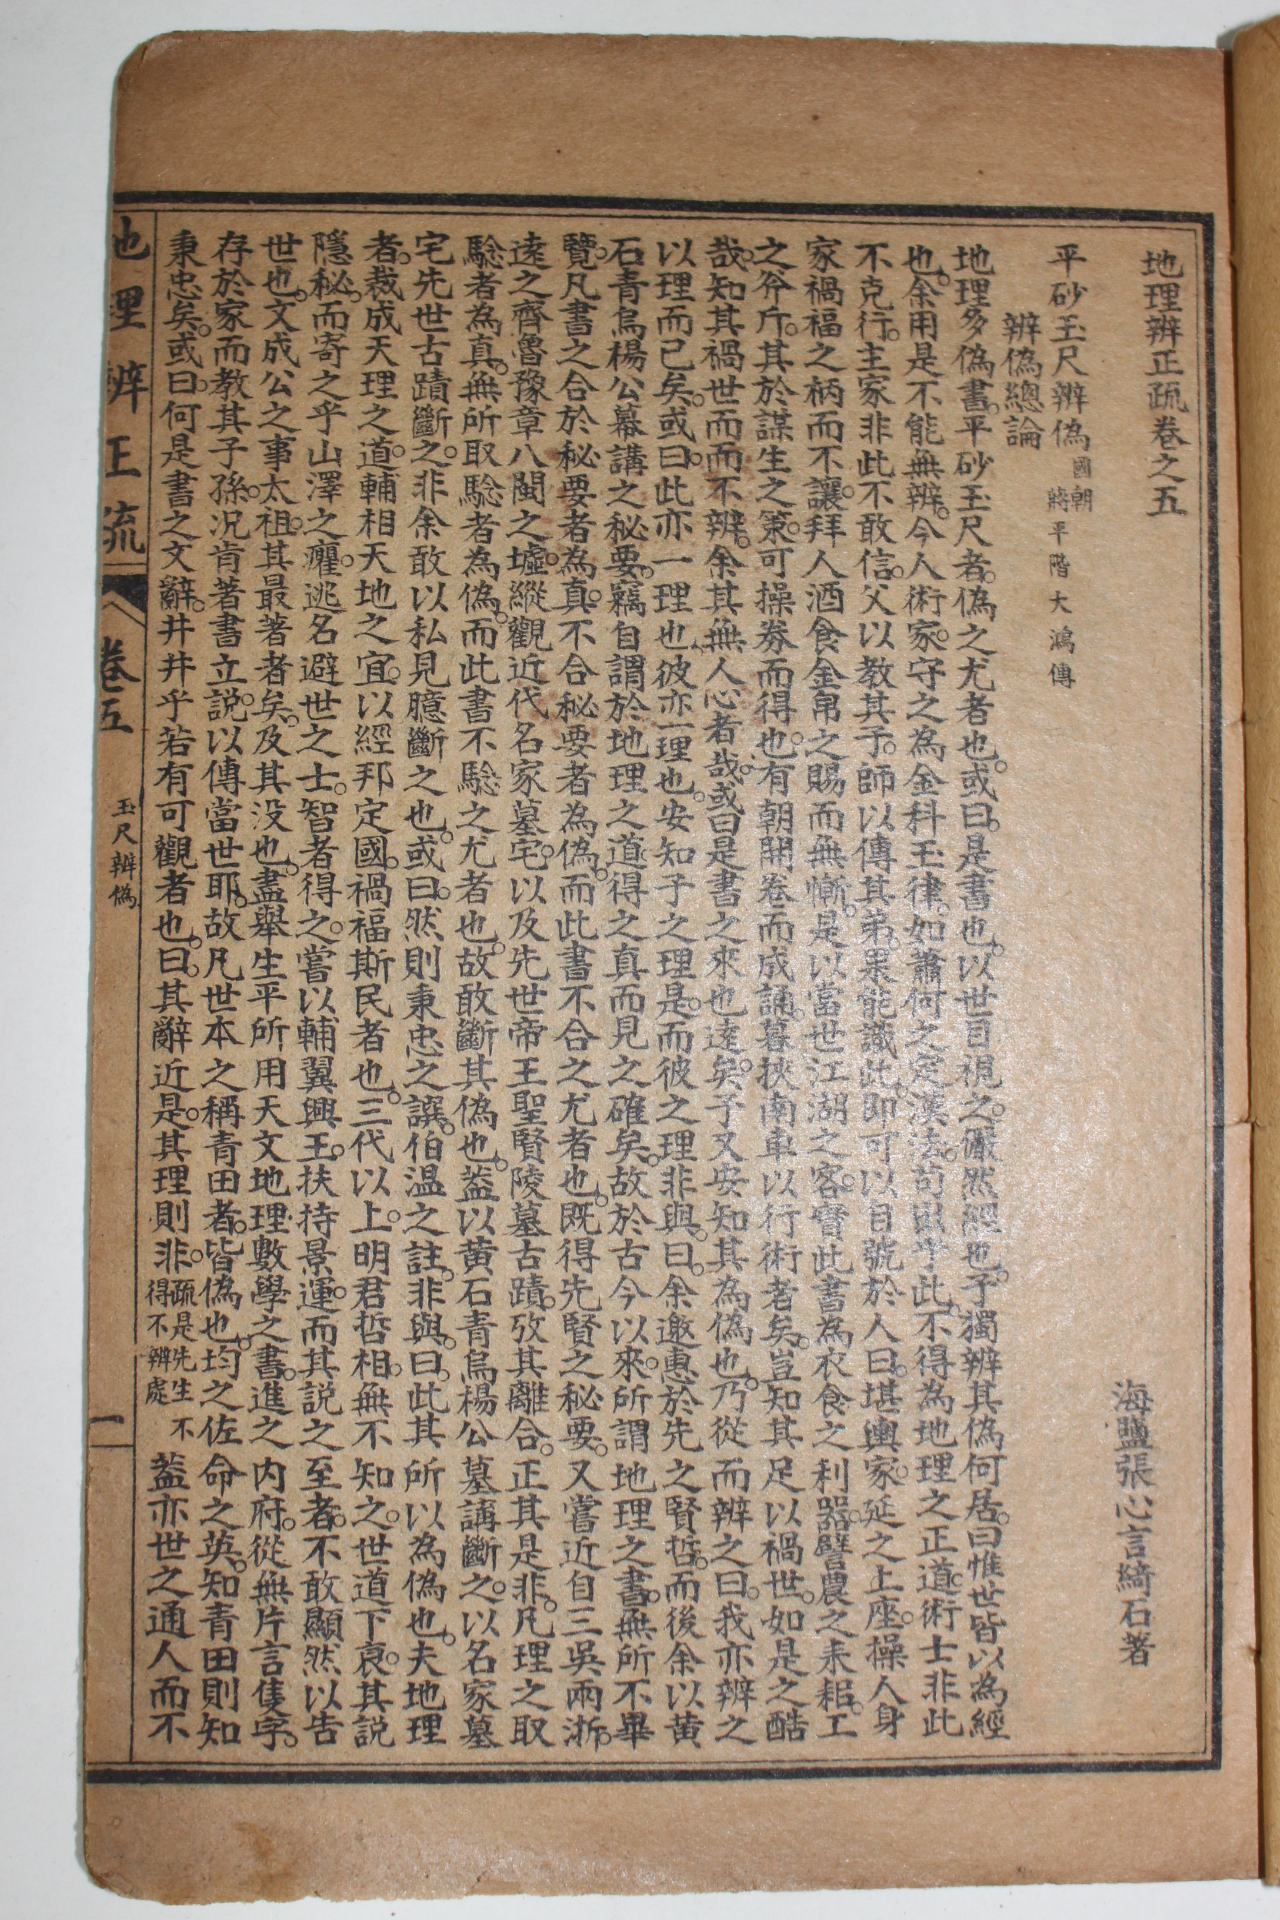 地理辨正疏卷之五
海鹽張心言綺石著
平砂玉尺辨僞 國朝 蔣平階大鴻傳
辨僞總論
地理多僞書。平砂玉尺者。僞之尤者也。或曰。是書也。以世目視之。儼然經也。子獨辨其僞何居。曰惟世皆以為經
也。余用是不能無辨。今人術家。守之為金科玉律。如蕭何之定漢法。苟出乎此。不得為地理之正道。術士非此
不克行。主家非此不敢信。父以教其子。師以傳其弟。果能識此。即可以自號於人。曰。堪輿家。延之上座。操人身
家禍福之柄而不讓。拜人酒食金帛之賜而無慚。是以當世江湖之客。寶此書為衣食之利器。譬農之耒耜。工
之斧斤。其於謀生之策。可操券而得也。有朝開卷而成誦。暮挾南車以行術者矣。豈知其足以禍世。如是之酷
哉。知其禍世而而不辨。余其無人心者哉。或曰是書之來也遠矣。子又安知其為僞也。乃從而辨之。曰。我亦辨之
以理而已矣。或曰。此亦一理也。彼亦一理也。安知子之理是。而彼之理非與。曰。余邀惠於先之賢哲。而後余以黃
石青烏楊公幕講之秘要。竊自謂於地理之道。得之真而見之確矣。故於古今以來。所謂地理之書。無所不畢
覽。凡書之合於秘要者為真。不合秘要者為僞。而此書不合之尤者也。既得先賢之秘要。又嘗近自三吳兩浙。
遠之齊魯豫章八閩之墟。縱觀近代名家墓宅。以及先世帝王聖賢陵墓古蹟。攷其離合。正其是非。凡理之取
驗者為真。無所取驗者為僞。而此書不驗之尤者也。故敢斷其僞也。葢以黃石青烏楊公墓講斷之。以名家墓
宅先世古蹟斷之。非余敢以私見臆斷之也。或曰。然則秉忠之譔。伯溫之註。非與。曰。此其所以為僞也。夫地理
者。裁成天理之道。輔相天地之宜。以經邦定國。禍福斯民者也。三代以上。明君哲相。無不知之。世道下衰。其說
隱秘。而寄之乎山澤之癯。逃名避世之士。智者得之。嘗以輔翼興王。扶持景運。而其說之至者。不敢顯然以告
世也。文成公之事太祖。其最著者矣。及其沒也。盡舉生平所用天文地理數學之書。進之內府。從無片言隻字。
存於家而教其子孫。況肯著書立說。以傳當世耶。故凡世本之稱青田者。皆僞也。均之佐命之英。知青田則知
秉忠矣。或曰。何是書之文辭。井井乎若有可觀者也。曰。其辭近是。其理則非。疏是先生不得不辨處 葢亦世之通人而不
地理辨正疏 卷五 玉尺辨僞 一